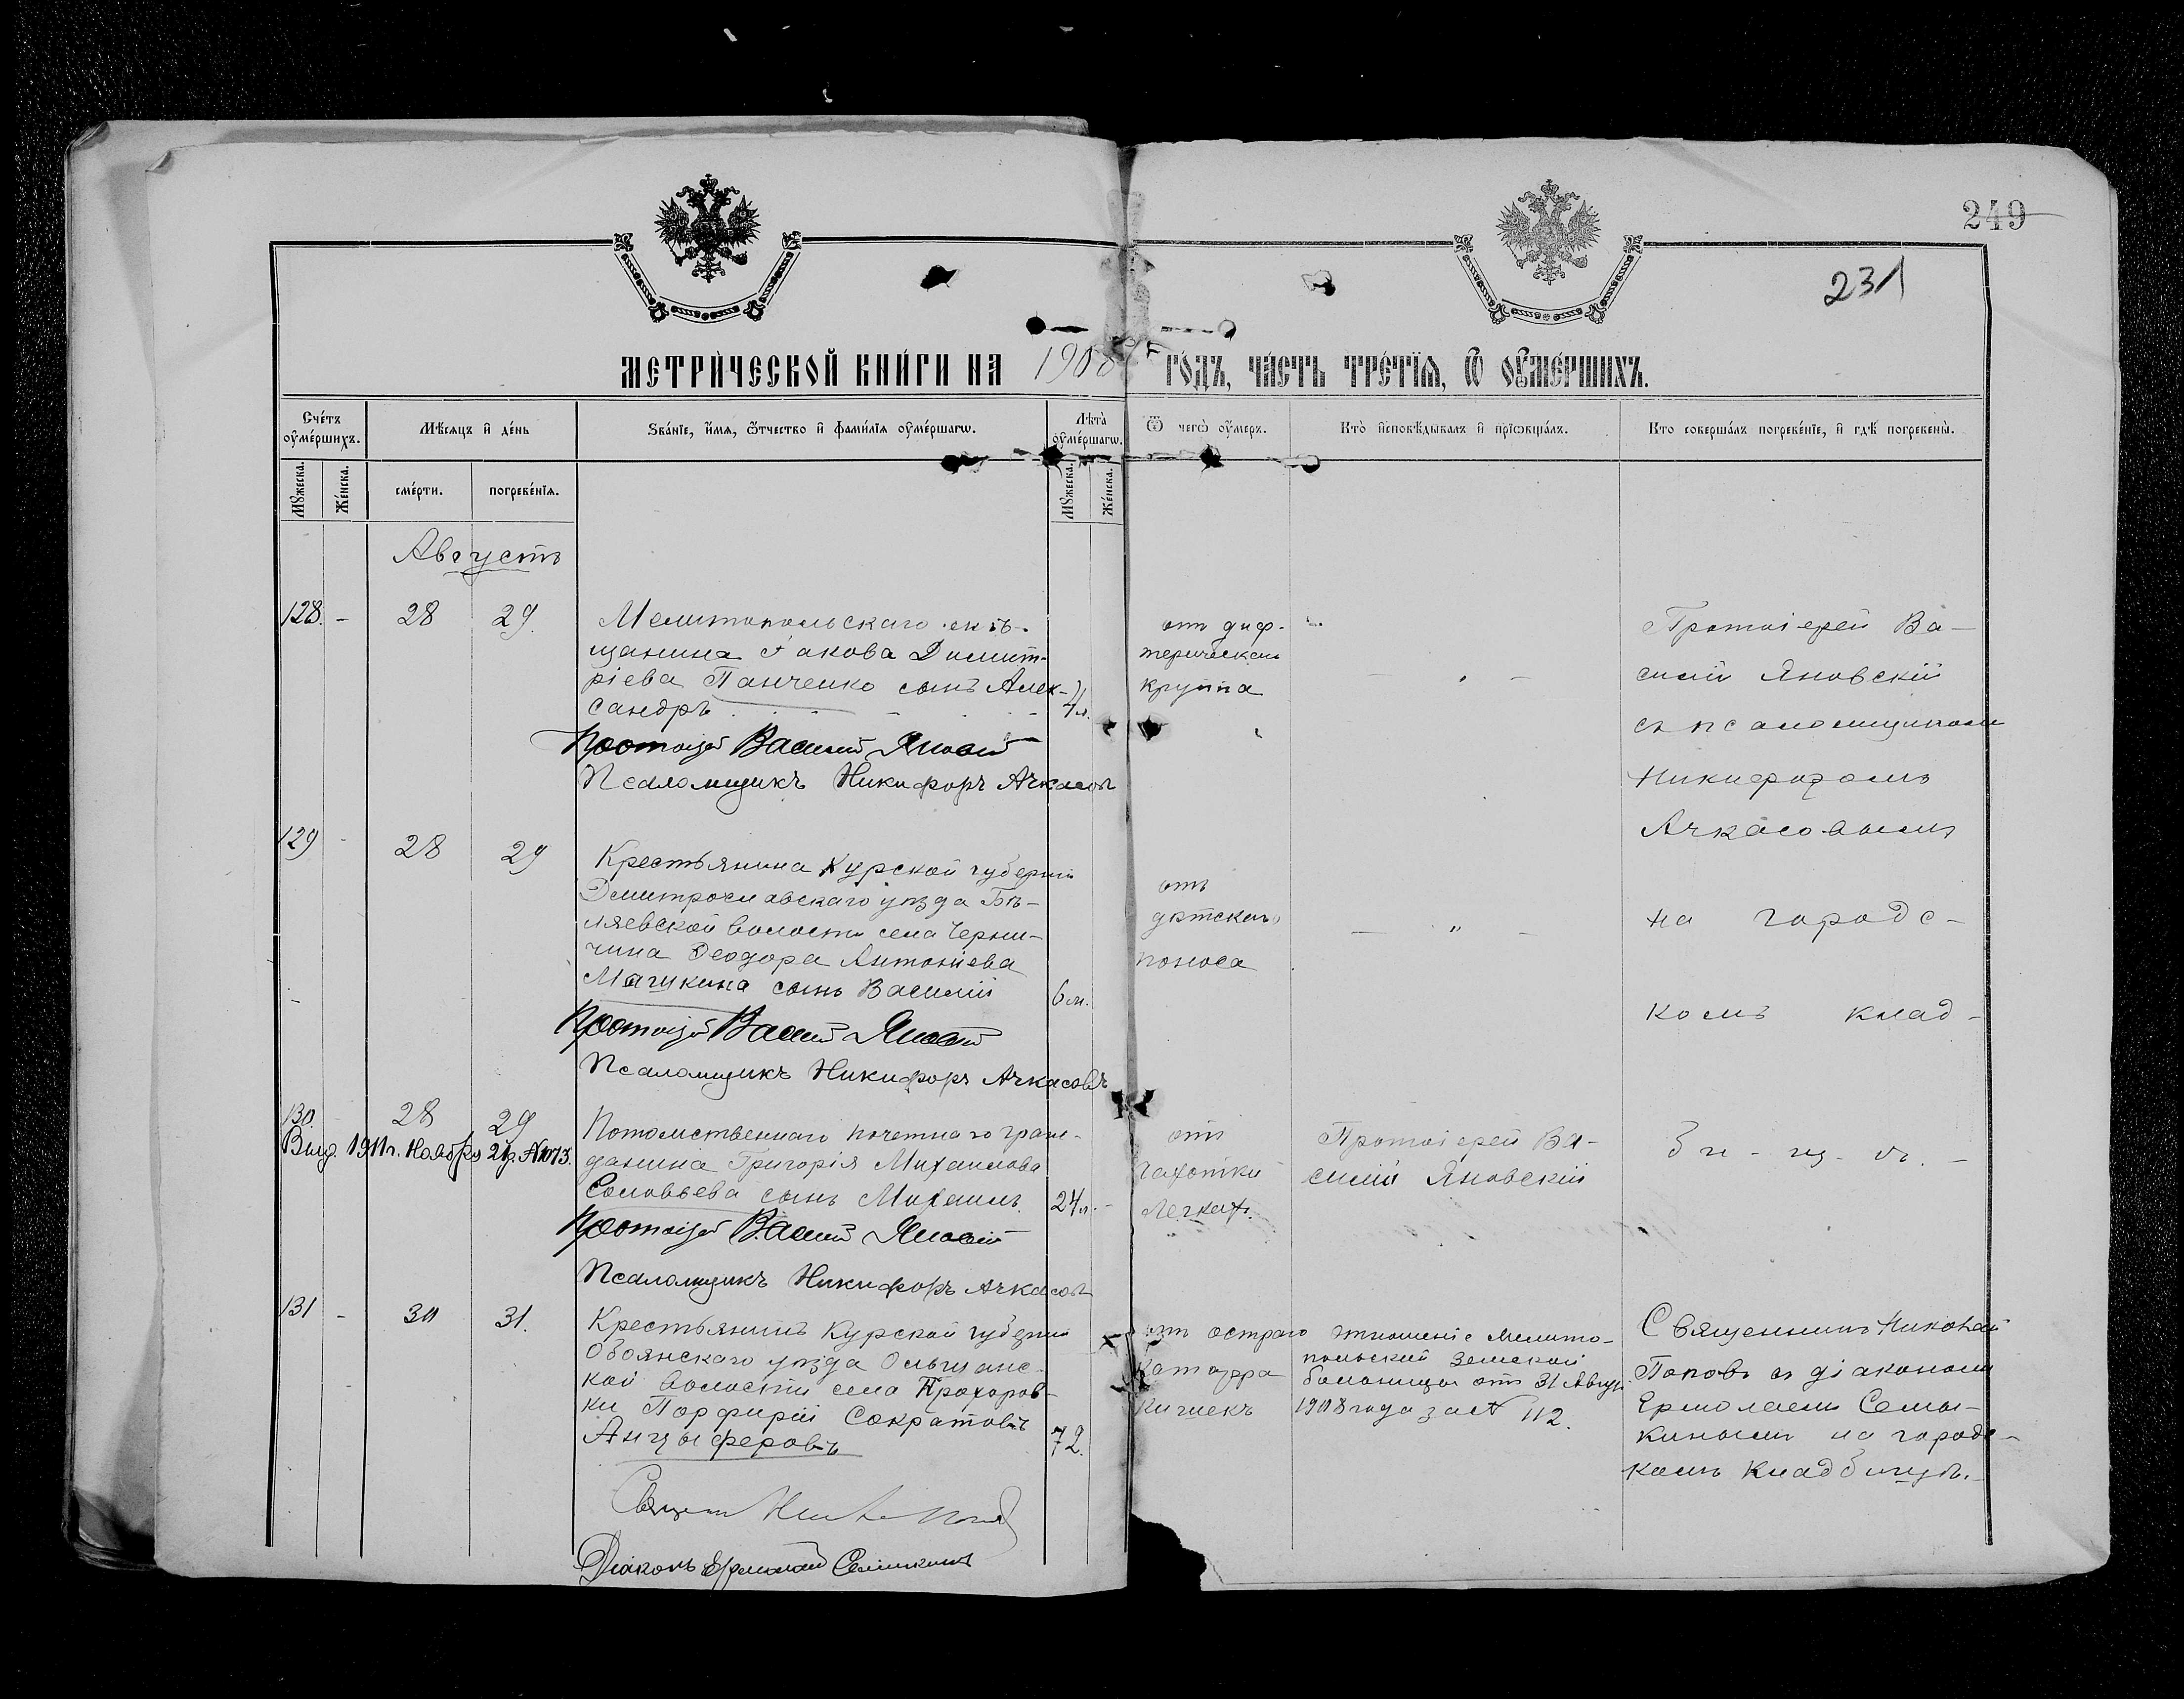 249
231
МЕТРИ́ЧЕСКОЙ КНИ́ГИ НА 1908 ГО́ДЪ, ЧА́СТЬ ТРЕ́ТЇѦ, Ѿ ОУ҆МЕ́РШИХЪ.
Сче́тъ оу҆ме́ршихъ.
Мѣ́сяцъ и҆ де́нь
Зва́нїе, и҆́мѧ, ѻ҆́тчество и҆ фами́лїѧ оу҆ме́ршагѡ.
Лѣ́та оу҆ме́ршагѡ.
Ѿ чегѡ̀ оу҆́меръ.
Кто̀ и҆сповѣ́дывалъ и҆ прїѡбща́лъ.
Кто соверша́лъ погребе́нїе, и҆ гдѣ̀ погребены̀.
Мꙋ́жеска.
Же́нска.
сме́рти.
погребе́нїѧ.
Мꙋ́жеска.
Же́нска.
Августъ
128. - 28 29.
Мелитопольскаго мѣ-
щанина Іакова Димит-
ріева Панченко сынъ Алек-
сандръ 7 л.
Протоіерей Василий Яновский
Псаломщикъ Никифоръ Ачкасовъ
от диф-
терическаго
круппа
- „ -
Протоіерей Ва-
силій Яновскій
съ псаломщикомъ
Никифоромъ
Ачкасовымъ
129 - 28 29
Крестьянина Курской губерніи
Дмитрославскаго уѣзда Бѣ-
ляевской волости села Черни-
чина Ѳеодора Антоніева
Мачукина сынъ Василій 6 м.
Протоіерей Василий Яновский
Псаломщикъ Никифоръ Ачкасовъ
отъ
дѣтскаго
поноса
- „ -
на городс-
комъ клад-
130. - 28 29
Выд. 1911 г. Ноября 21 д. №1073.
Потомственнаго почетнаго граж-
данина Григорія Михаилова
Соловьева сынъ Михаилъ 24 л. -
Протоіерей Василий Яновский
Псаломщикъ Никифоръ Ачкасовъ
отъ
чахотки
легких.
Протоіерей Ва-
силій Яновскій
би-щ-ѣ. -
131 - 30 31.
Крестьянинъ Курской губерніи
Обоянскаго уѣзда Ольшанс-
кой волости села Прохоров-
ки Порфирій Сократовъ
Анцыферовъ 72.
Діаконъ Ермолай Семыкинъ
от остраго
катарра
кишекъ
отношеніе Мелито-
польской Земской
больницы от 31 Август.
1908 года за № 112.
Священникъ Николай
Поповъ съ діакономъ
Ермолаемъ Семы-
кинымъ на городс-
комъ кладбищѣ.